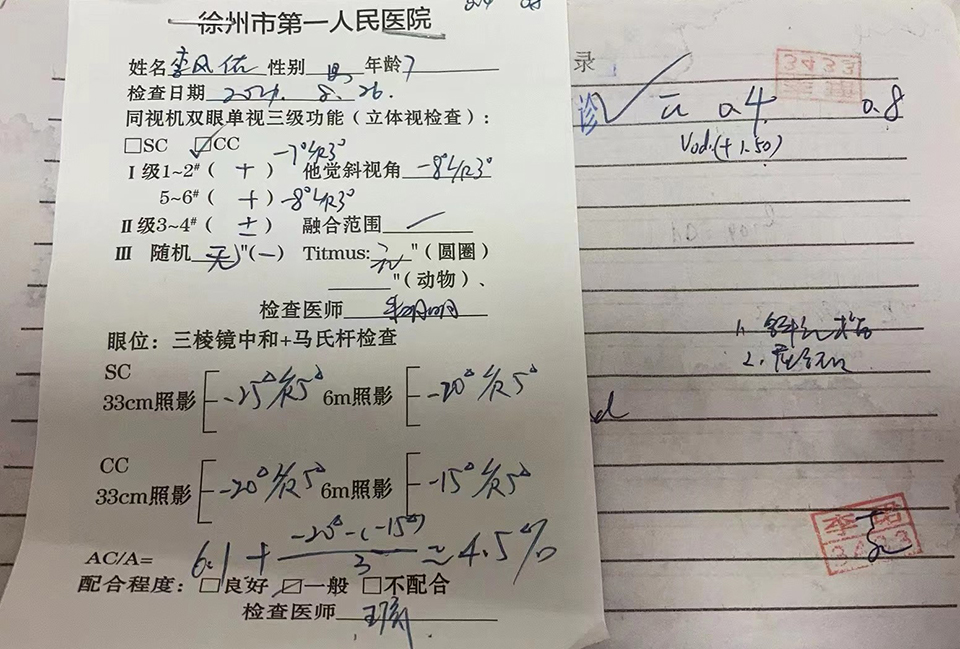 徐州市第一人民医院
姓名 李风佑 性别 男 年龄 7
检查日期 2024. 8. 26.
同视机双眼单视三级功能（立体视检查）：
□SC ☑CC -7°L/R3°
I 级1~2#（ + ） 他觉斜视角 -8°L/R3°
5~6#（ + ）-8°L/R3°
II 级3~4#（ ± ） 融合范围 /
III 随机 无 "(—) Titmus: 无 "（圆圈）
"（动物）、
检查医师
眼位：三棱镜中和+马氏杆检查
SC
33cm照影 -25△ 5△ 6m照影 -20△ 5△
CC
33cm照影 -20△ 5△ 6m照影 -15△ 5△
AC/A= 6.1 + -20△-(-15△)/3 ≈ 4.5
配合程度：□良好 ☑一般 □不配合
检查医师
录
3433
诊 0.4 0.8
Vod.(+1.50)
1.
2.
3433